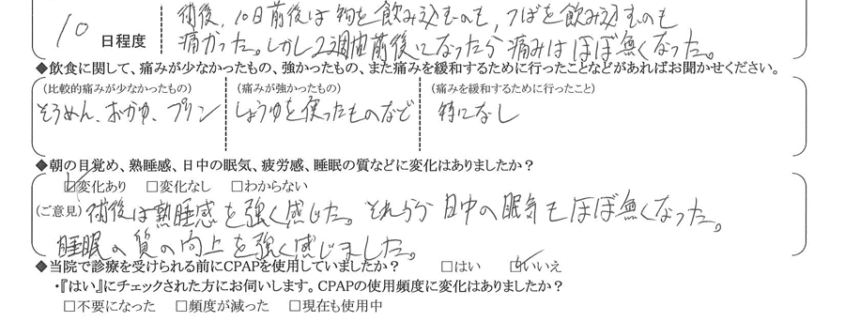 術後、10日前後は物を飲み込むのも、つばを飲み込むのも
10 日程度 痛かった。しかし2週間前後になったら痛みはほぼ無くなった。
◆飲食に関して、痛みが少なかったもの、強かったもの、また痛みを緩和するために行ったことなどがあればお聞かせください。
(比較的痛みが少なかったもの) (痛みが強かったもの) (痛みを緩和するために行ったこと)
そうめん、おかゆ、プリン しょうゆを使ったものなど 特になし
◆朝の目覚め、熟睡感、日中の眠気、疲労感、睡眠の質などに変化はありましたか?
☑変化あり □変化なし □わからない
(ご意見) 術後は熟睡感を強く感じた。それから日中の眠気もほぼ無くなった。
睡眠の質の向上を強く感じました。
◆当院で診療を受けられる前にCPAPを使用していましたか? □はい ☑いいえ
・『はい』にチェックされた方にお伺いします。CPAPの使用頻度に変化はありましたか?
□不要になった □頻度が減った □現在も使用中